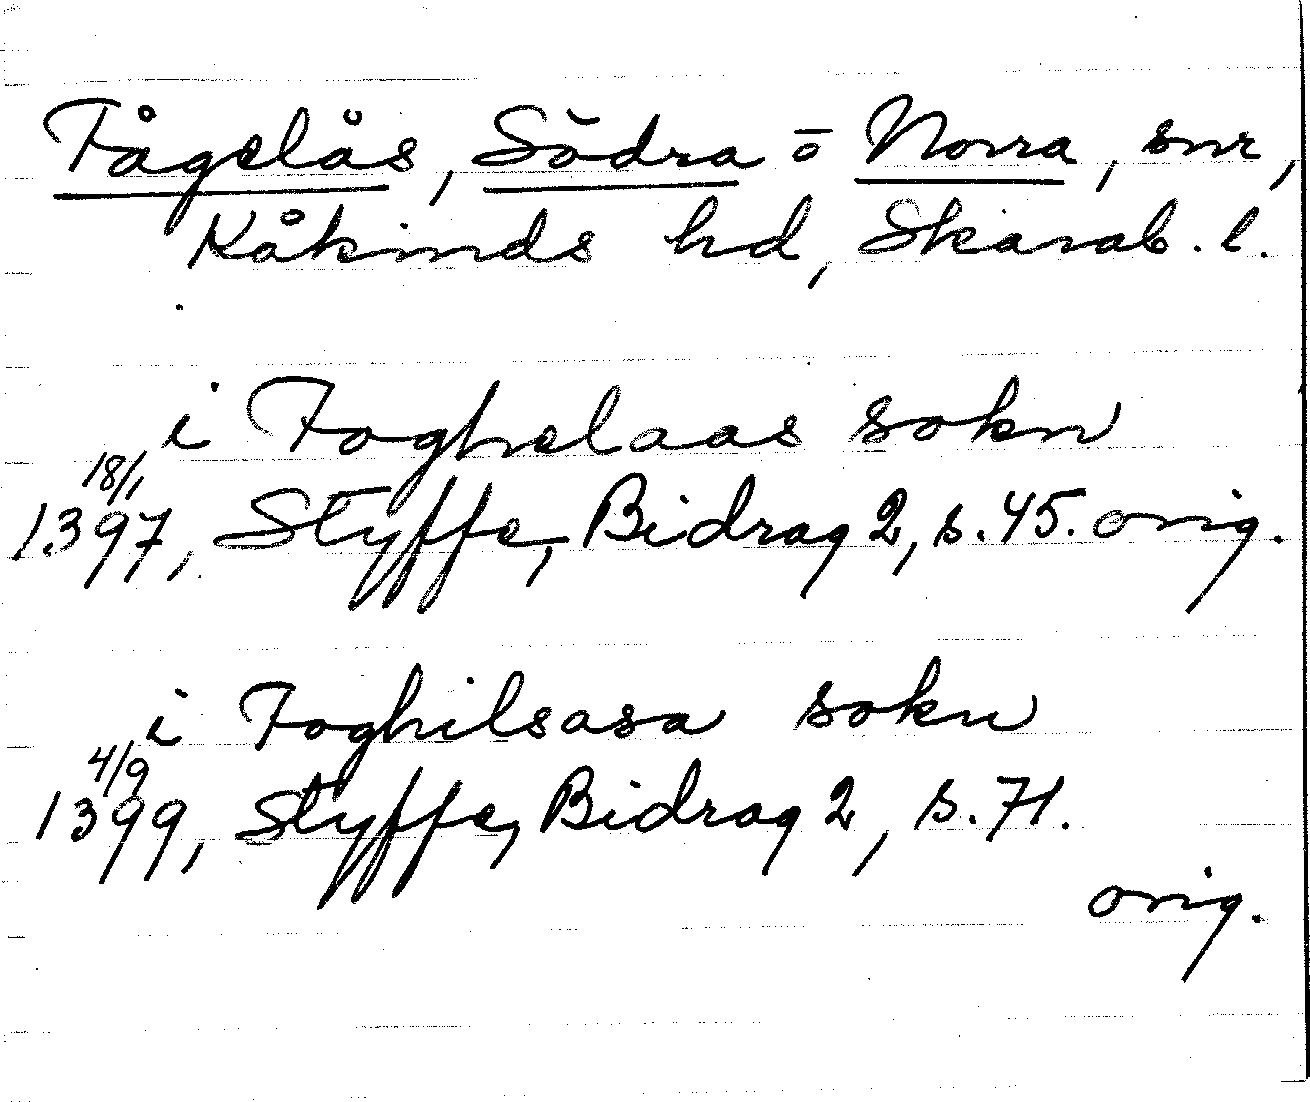 Fågelås, Södra o Norra, snr,
Kåkinds hd, Skarab. l.
i Foghelaas sokn
18/1
1397, Styffe, Bidrag 2, s. 45. orig.
i Foghilsasa sokn
4/9
1399, Styffe, Bidrag 2, s. 71.
orig.